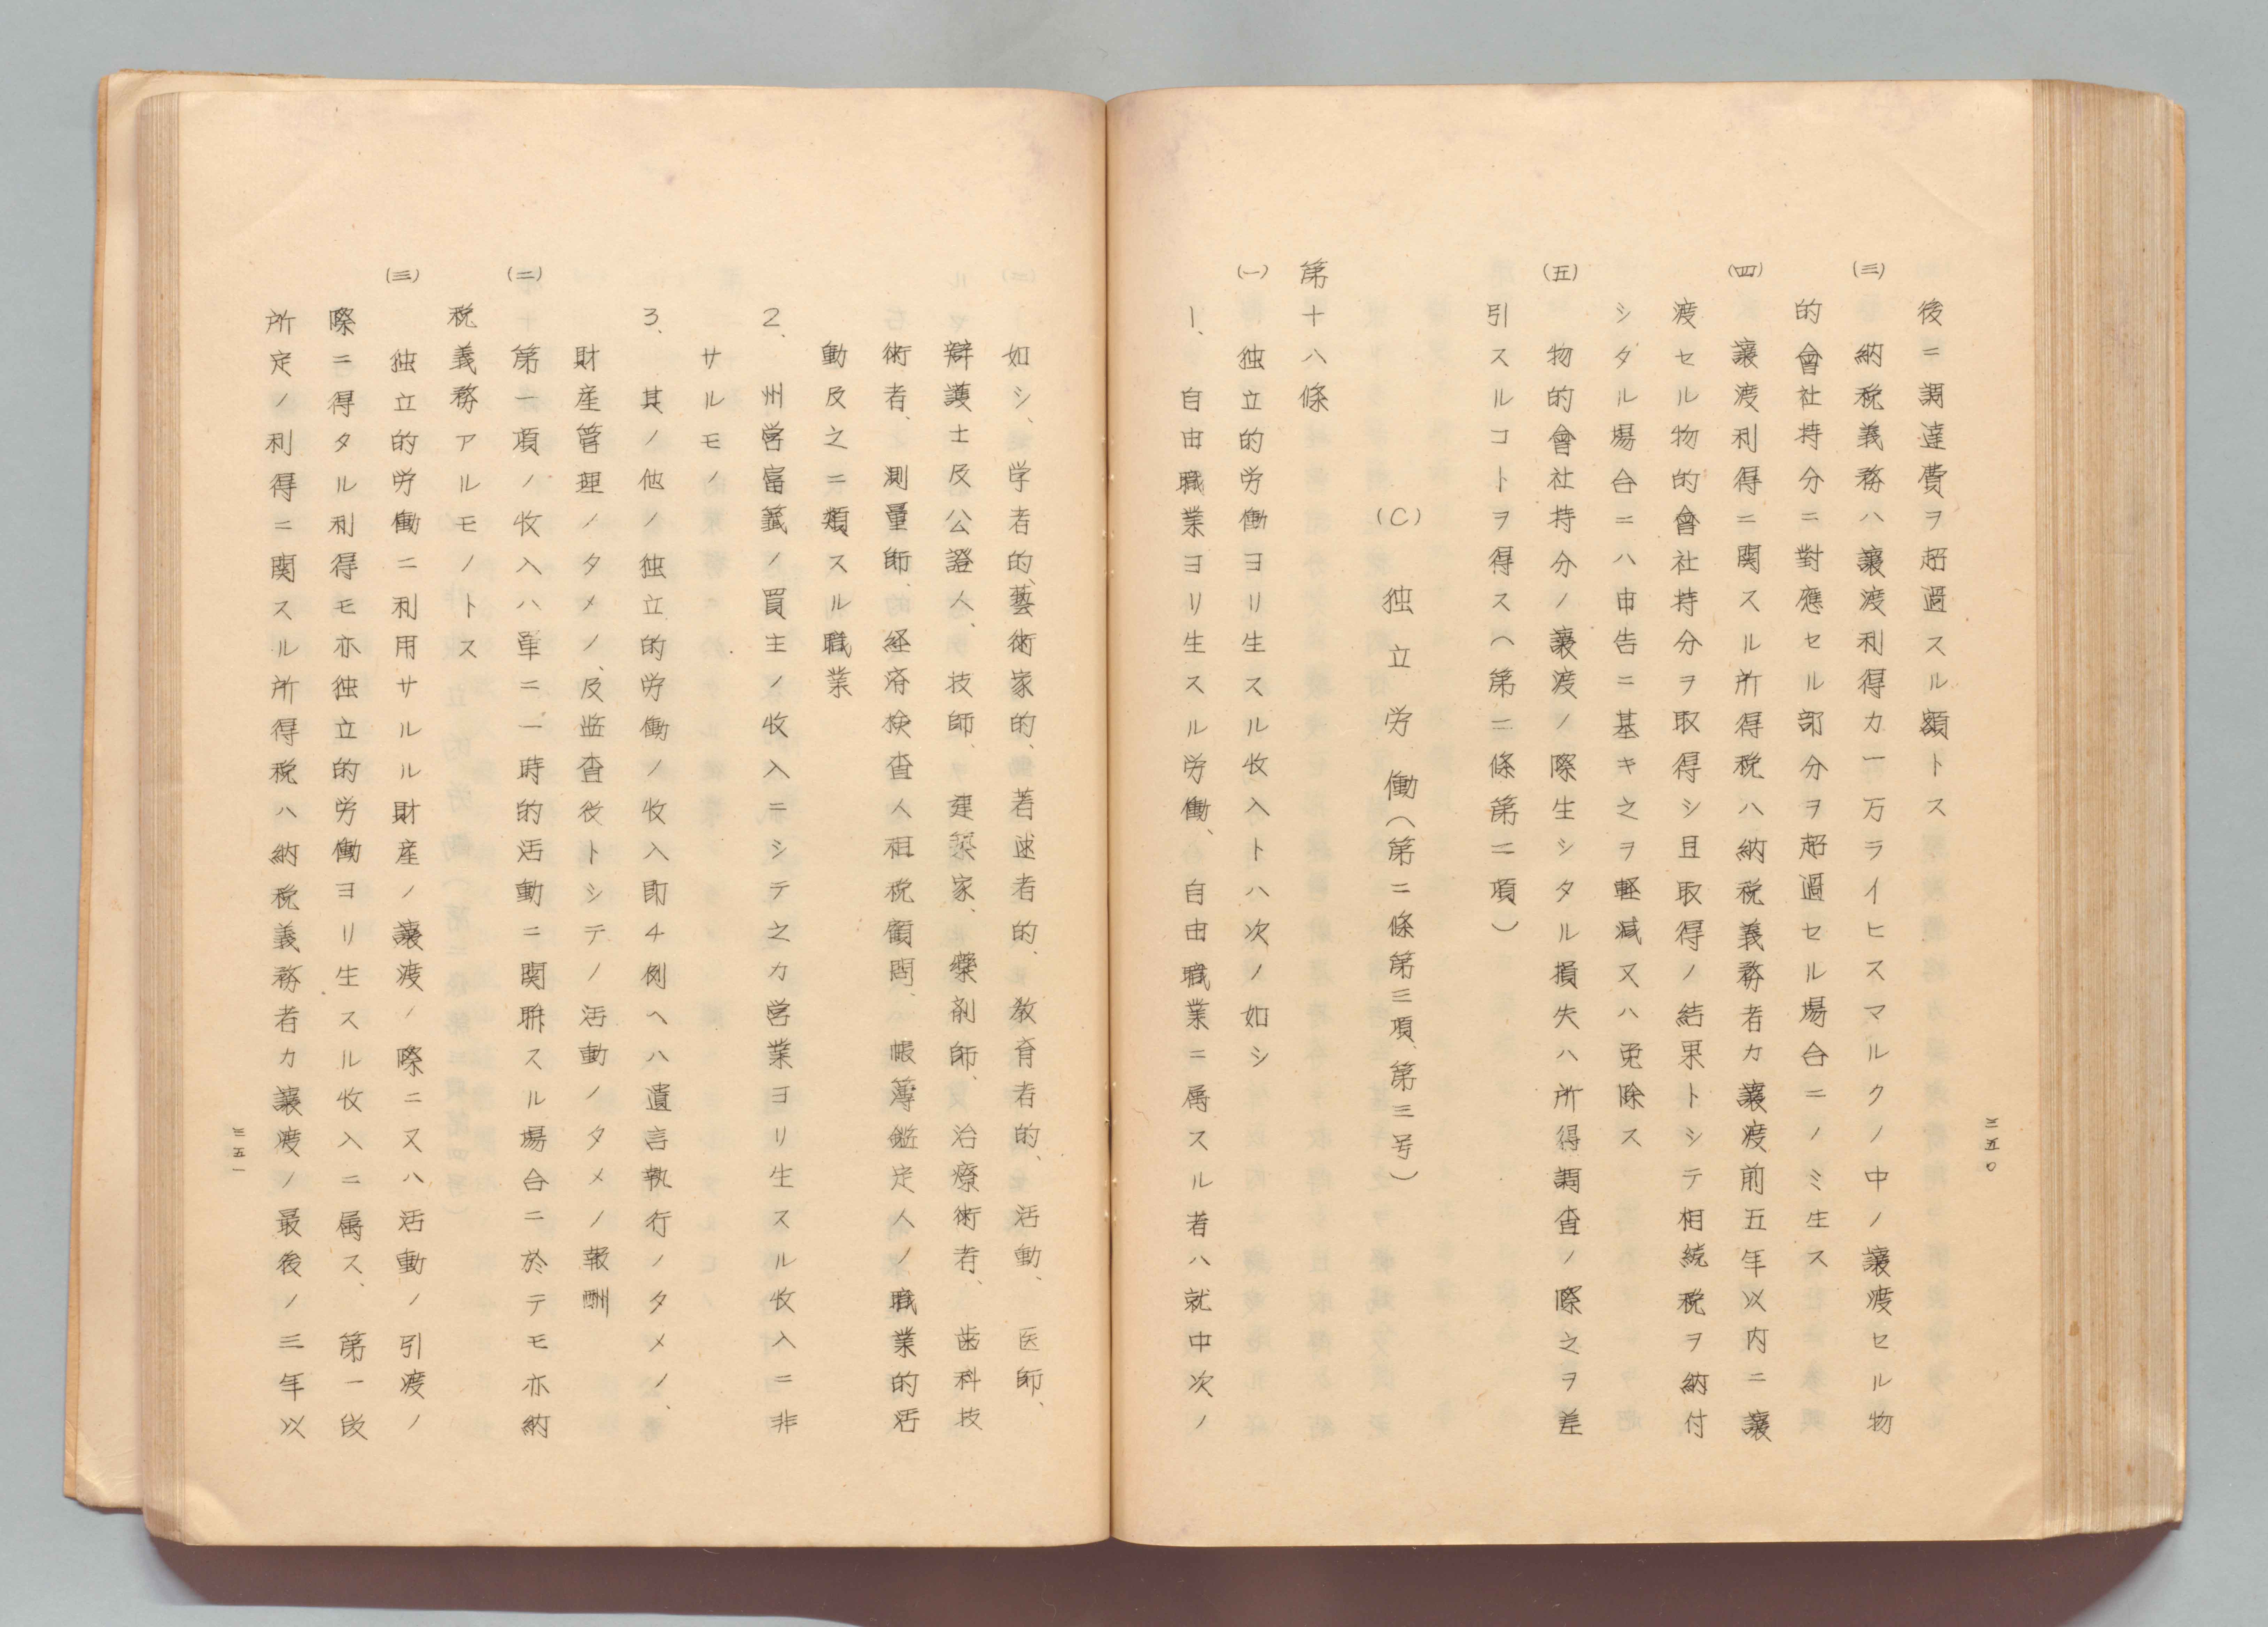 後ニ調達費ヲ超過スル額トス
(三) 納税義務ハ讓渡利得カ一万ライヒスマルクノ中ノ讓渡セル物
的會社持分ニ對應セル部分ヲ超過セル場合ニノミ生ス
(四) 讓渡利得ニ関スル所得税ハ納税義務者カ讓渡前五年以内ニ讓
渡セル物的會社持分ヲ取得シ且取得ノ結果トシテ相続税ヲ納付
シタル場合ニハ申告ニ基キ之ヲ軽減又ハ免除ス
(五) 物的會社持分ノ讓渡ノ際生シタル損失ハ所得調査ノ際之ヲ差
引スルコトヲ得ス(第二條第二項)
(C) 独立労働(第二條第三項、第三号)
第十八條
(一) 独立的労働ヨリ生スル收入トハ次ノ如シ
1、自由職業ヨリ生スル労働、自由職業ニ属スル者ハ就中次ノ
三五〇
如シ、学者的、藝術家的、著述者的、教育者的、活動、医師、
辯護士及公證人、技師、建築家、藥剤師、治療術者、歯科技
術者、測量師、経済検査人租税顧問、帳簿鑑定人ノ職業的活
動及之ニ類スル職業
2、州営富籤ノ買主ノ收入ニシテ之カ営業ヨリ生スル收入ニ非
サルモノ
3、其ノ他ノ独立的労働ノ收入即チ例ヘハ遺言執行ノタメノ、
財産管理ノタメノ、及監査役トシテノ活動ノタメノ報酬
(二) 第一項ノ收入ハ単ニ一時的活動ニ関聯スル場合ニ於テモ亦納
税義務アルモノトス
(三) 独立的労働ニ利用サルル財産ノ讓渡ノ際ニ又ハ活動ノ引渡ノ
際ニ得タル利得モ亦独立的労働ヨリ生スル收入ニ属ス、第一段
所定ノ利得ニ関スル所得税ハ納税義務者カ讓渡ノ最後ノ三年以
三五一